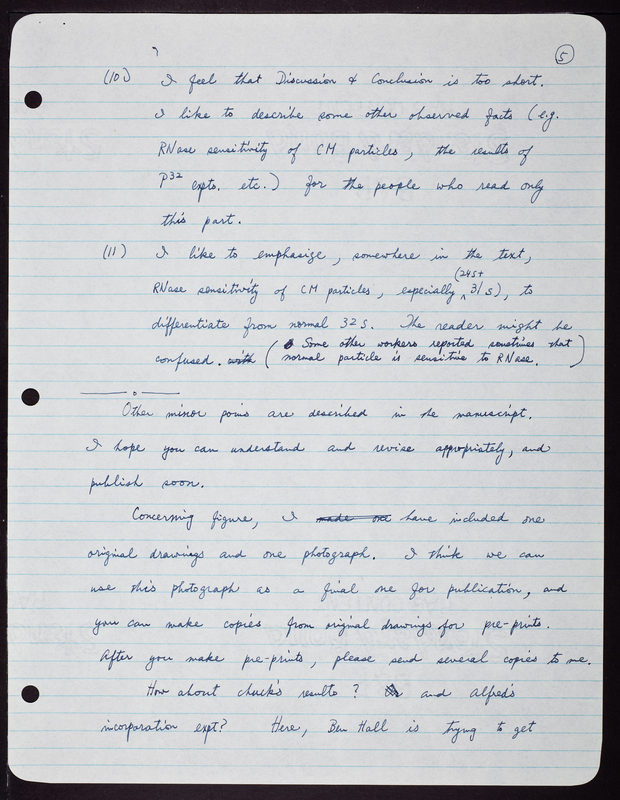 5
(10) I feel that Discussion & Conclusion is too short.
I like to describe some other observed facts (e.g.
RNase sensitivity of CM particles, the results of
P32 expts. etc.) for the people who read only
this part.
(11) I like to emphasize, somewhere in the text,
(24S +
RNase sensitivity of CM particles, especially ^ 31S), to
differentiate from normal 32S. The reader might be
( Some other workers reported sometimes that
confused. with normal particle is sensitive to RNase. )
Other minor poins are described in the manuscript.
I hope you can understand and revise appropriately, and
publish soon.
Concerning figure, I made one have included one
original drawings and one photograph. I think we can
use this photograph as a final one for publication, and
you can make copies from original drawings for pre-prints.
After you make pre-prints, please send several copies to me.
How about chuck's results? and Alfred's
incorporation expt? Here, Ben Hall is trying to get